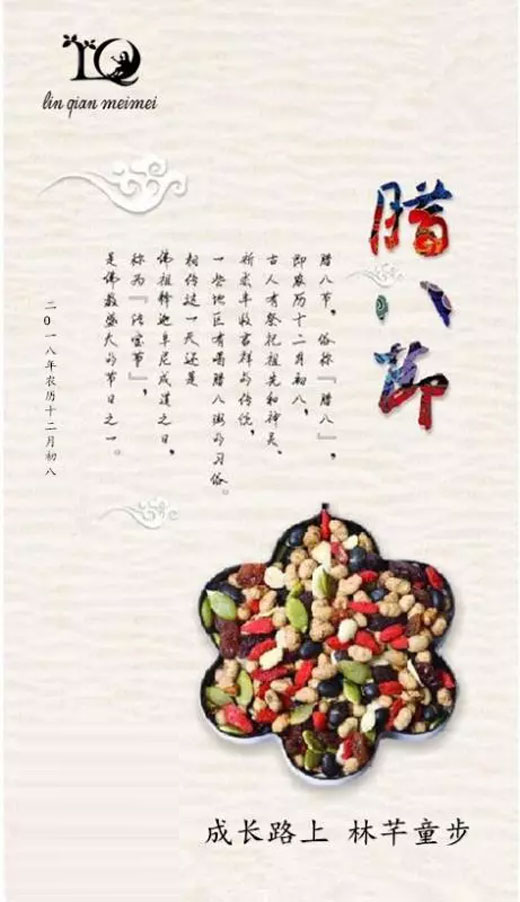 LQ
lin qian meimei
腊八节
腊八节，俗称『腊八』，
即农历十二月初八，
古人有祭祀祖先和神灵、
祈求丰收吉祥的传统，
一些地区有喝腊八粥的习俗。
相传这一天还是
佛祖释迦牟尼成道之日，
称为『法宝节』，
是佛教盛大的节日之一。
二0一八年农历十二月初八
成长路上 林芊童步